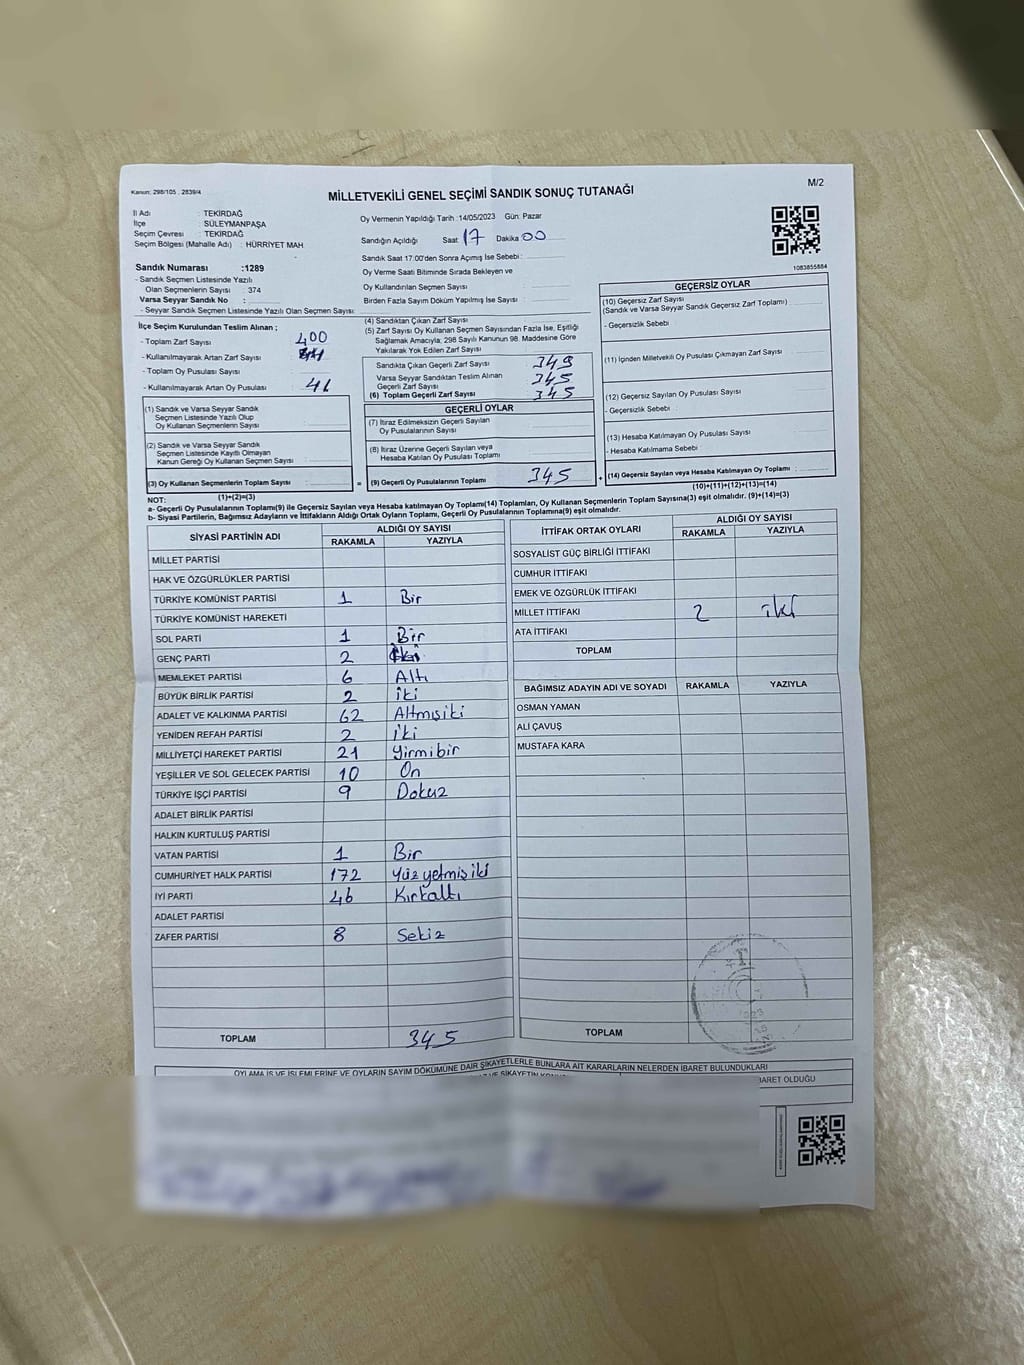 Kanun: 298/105 , 2839/4
MİLLETVEKİLİ GENEL SEÇİMİ SANDIK SONUÇ TUTANAĞI
M/2
İl Adı : TEKİRDAĞ
İlçe : SÜLEYMANPAŞA
Seçim Çevresi : TEKİRDAĞ
Seçim Bölgesi (Mahalle Adı) : HÜRRİYET MAH
Sandık Numarası :1289
- Sandık Seçmen Listesinde Yazılı
Olan Seçmenlerin Sayısı : 374
Varsa Seyyar Sandık No :
- Seyyar Sandık Seçmen Listesinde Yazılı Olan Seçmen Sayısı:
Oy Vermenin Yapıldığı Tarih :14/05/2023 Gün: Pazar
Sandığın Açıldığı Saat: 17 Dakika: 00
Sandık Saat 17:00'den Sonra Açımış İse Sebebi :
Oy Verme Saati Bitiminde Sırada Bekleyen ve
Oy Kullandırılan Seçmen Sayısı :
Birden Fazla Sayım Döküm Yapılmış İse Sayısı :
1083855884
İlçe Seçim Kurulundan Teslim Alınan ;
- Toplam Zarf Sayısı : 400
- Kullanılmayarak Artan Zarf Sayısı :
- Toplam Oy Pusulası Sayısı :
- Kullanılmayarak Artan Oy Pusulası : 41
(1) Sandık ve Varsa Seyyar Sandık
Seçmen Listesinde Yazılı Olup
Oy Kullanan Seçmenlerin Sayısı :
(2) Sandık ve Varsa Seyyar Sandık
Seçmen Listesinde Kayıtlı Olmayan
Kanun Gereği Oy Kullanan Seçmen Sayısı :
(3) Oy Kullanan Seçmenlerin Toplam Sayısı :
(1)+(2)=(3)
(4) Sandıktan Çıkan Zarf Sayısı :
(5) Zarf Sayısı Oy Kullanan Seçmen Sayısından Fazla İse, Eşitliği
Sağlamak Amacıyla, 298 Sayılı Kanunun 98. Maddesine Göre
Yakılarak Yok Edilen Zarf Sayısı :
Sandıkta Çıkan Geçerli Zarf Sayısı : 349
Varsa Seyyar Sandıktan Teslim Alınan
Geçerli Zarf Sayısı : 345
(6) Toplam Geçerli Zarf Sayısı : 345
GEÇERLİ OYLAR
(7) İtiraz Edilmeksizin Geçerli Sayılan
Oy Pusulalarının Sayısı :
(8) İtiraz Üzerine Geçerli Sayılan veya
Hesaba Katılan Oy Pusulası Toplamı :
= (9) Geçerli Oy Pusulalarının Toplamı : 345 +
GEÇERSİZ OYLAR
(10) Geçersiz Zarf Sayısı
(Sandık ve Varsa Seyyar Sandık Geçersiz Zarf Toplamı) :
- Geçersizlik Sebebi :
(11) İçinden Milletvekili Oy Pusulası Çıkmayan Zarf Sayısı :
(12) Geçersiz Sayılan Oy Pusulası Sayısı :
- Geçersizlik Sebebi :
(13) Hesaba Katılmayan Oy Pusulası Sayısı :
- Hesaba Katılmama Sebebi :
(14) Geçersiz Sayılan veya Hesaba Katılmayan Oy Toplamı :
(10)+(11)+(12)+(13)=(14)
NOT:
a- Geçerli Oy Pusulalarının Toplamı(9) ile Geçersiz Sayılan veya Hesaba katılmayan Oy Toplamı(14) Toplamları, Oy Kullanan Seçmenlerin Toplam Sayısına(3) eşit olmalıdır. (9)+(14)=(3)
b- Siyasi Partilerin, Bağımsız Adayların ve İttifakların Aldığı Ortak Oyların Toplamı, Geçerli Oy Pusulalarının Toplamına(9) eşit olmalıdır.
SİYASİ PARTİNİN ADI ALDIĞI OY SAYISI
RAKAMLA YAZIYLA
MİLLET PARTİSİ
HAK VE ÖZGÜRLÜKLER PARTİSİ
TÜRKİYE KOMÜNİST PARTİSİ 1 Bir
TÜRKİYE KOMÜNİST HAREKETİ
SOL PARTİ 1 Bir
GENÇ PARTİ 2 iki
MEMLEKET PARTİSİ 6 Altı
BÜYÜK BİRLİK PARTİSİ 2 iki
ADALET VE KALKINMA PARTİSİ 62 Altmışiki
YENİDEN REFAH PARTİSİ 2 iki
MİLLİYETÇİ HAREKET PARTİSİ 21 Yirmibir
YEŞİLLER VE SOL GELECEK PARTİSİ 10 On
TÜRKİYE İŞÇİ PARTİSİ 9 Dokuz
ADALET BİRLİK PARTİSİ
HALKIN KURTULUŞ PARTİSİ
VATAN PARTİSİ 1 Bir
CUMHURİYET HALK PARTİSİ 172 Yüz yetmiş iki
İYİ PARTİ 46 Kırkaltı
ADALET PARTİSİ
ZAFER PARTİSİ 8 Sekiz
TOPLAM 345
İTTİFAK ORTAK OYLARI ALDIĞI OY SAYISI
RAKAMLA YAZIYLA
SOSYALİST GÜÇ BİRLİĞİ İTTİFAKI
CUMHUR İTTİFAKI
EMEK VE ÖZGÜRLÜK İTTİFAKI
MİLLET İTTİFAKI 2 iki
ATA İTTİFAKI
TOPLAM
BAĞIMSIZ ADAYIN ADI VE SOYADI RAKAMLA YAZIYLA
OSMAN YAMAN
ALİ ÇAVUŞ
MUSTAFA KARA
TOPLAM
OYLAMA İŞ VE İŞLEMLERİNE VE OYLARIN SAYIM DÖKÜMÜNE DAİR ŞİKAYETLERLE BUNLARA AİT KARARLARIN NELERDEN İBARET BULUNDUKLARI
İBARET OLDUĞU